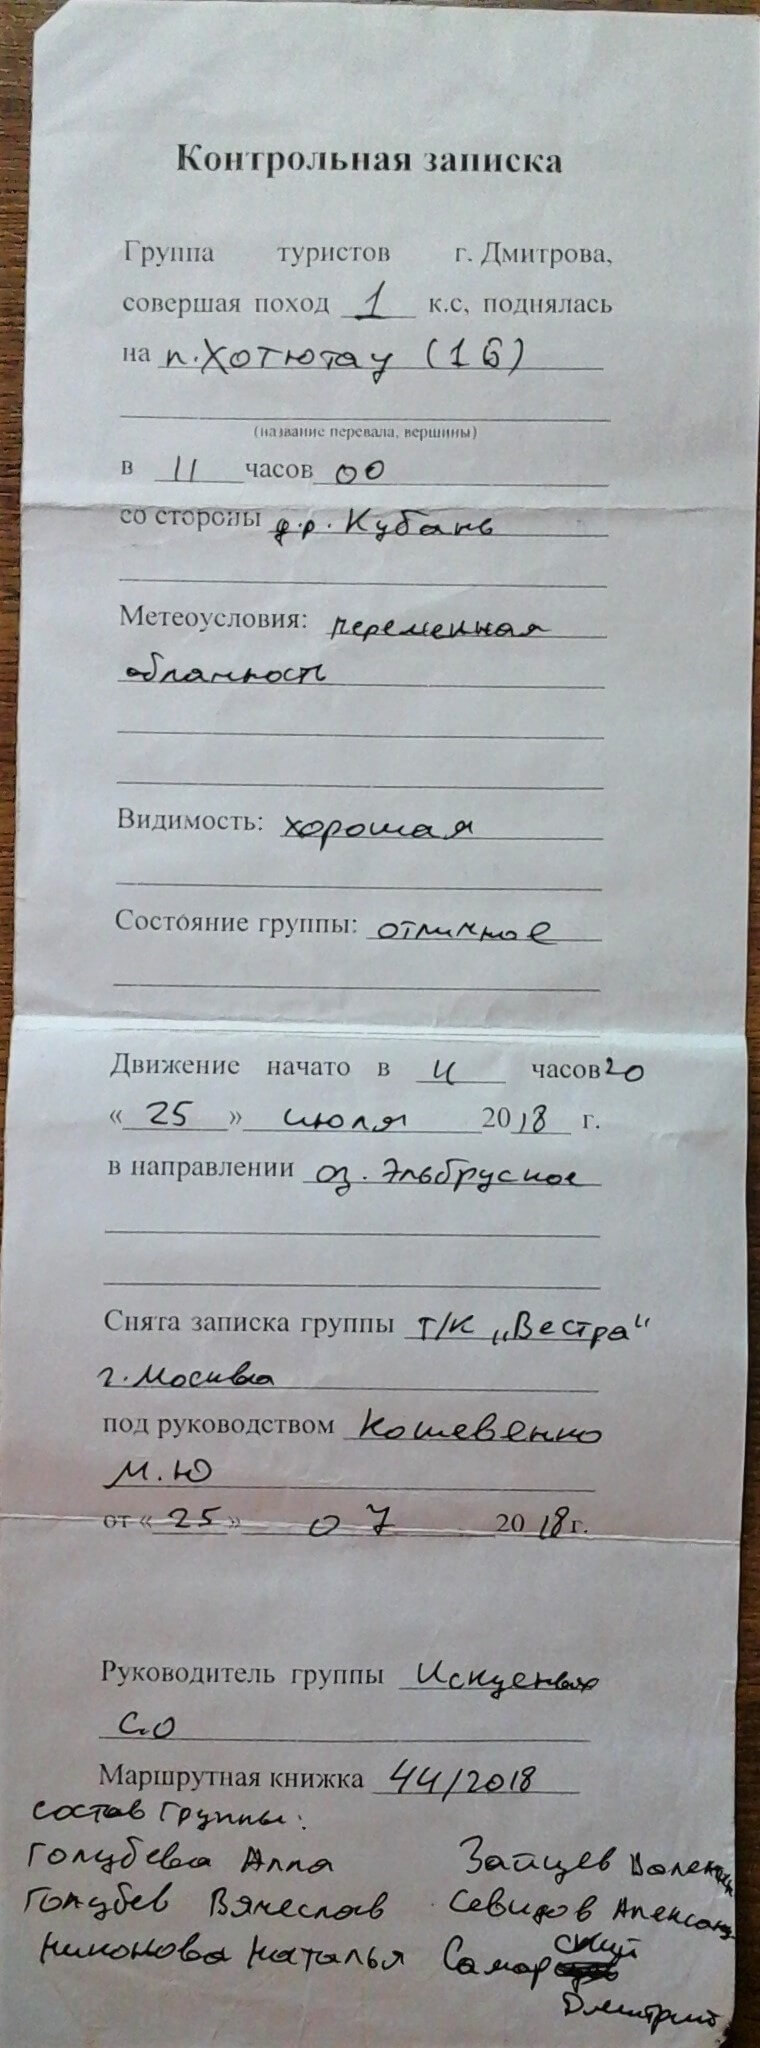 Контрольная записка
Группа туристов г. Дмитрова,
совершая поход 1 к.с, поднялась
на п. Хотютау (1Б)
(название перевала, вершины)
в 11 часов 00
со стороны д.р. Кубань
Метеоусловия: переменная
облачность
Видимость: хорошая
Состояние группы: отличное
Движение начато в 11 часов 20
« 25 » июля 2018 г.
в направлении оз. Эльбрусное
Снята записка группы т/к „Вестра"
г. Москва
под руководством Кошевенко
М.Ю
от « 25 » 07 2018 г.
Руководитель группы
С.О
Маршрутная книжка 44/2018
состав группы:
Голубева Алла Зайцев
Голубев Вячеслав Севидов
Никонова Наталья Самарский
Дмитрий